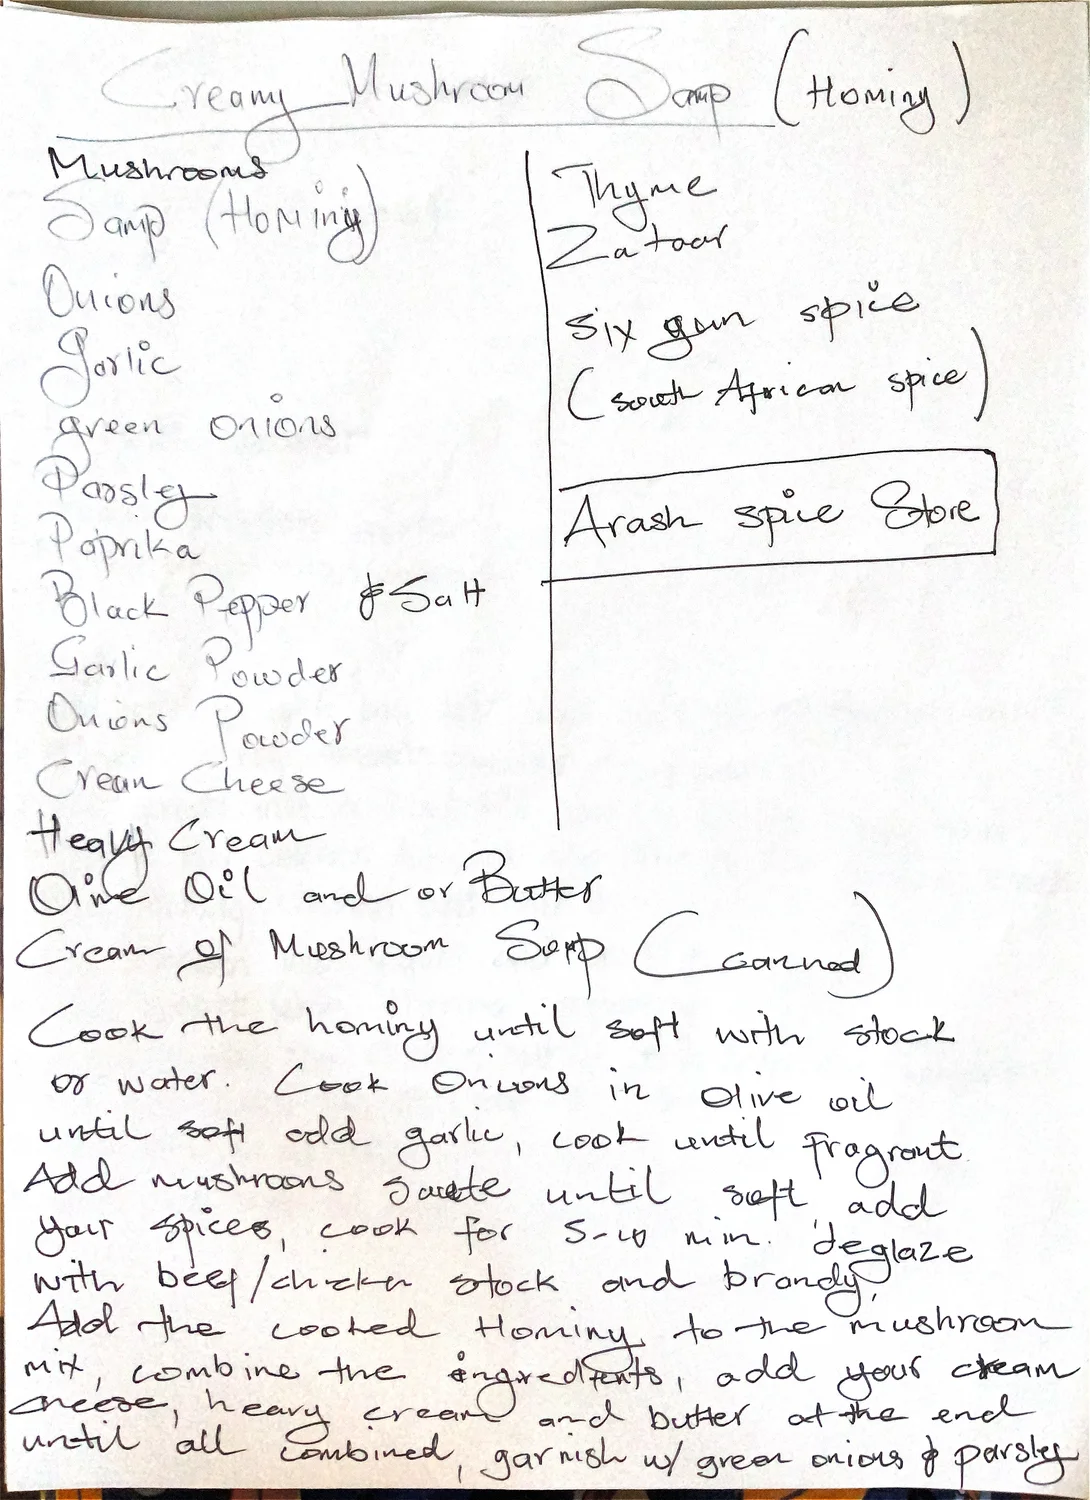 Creamy Mushroom Samp (Hominy)
Mushrooms
Samp (Hominy)
Onions
Garlic
green onions
Parsley
Paprika
Black Pepper & Salt
Garlic Powder
Onions Powder
Cream Cheese
Heavy Cream
Olive Oil and or Butter
Cream of Mushroom Soup (canned)
Thyme
Zataar
six gun spice
(south African spice)
Arash spice Store
Cook the hominy until soft with stock
or water. Cook Onions in Olive oil
until soft add garlic, cook until fragrant.
Add mushrooms saute until soft, add
your spices, cook for 5-10 min. deglaze
with beef/chicken stock and brandy.
Add the cooked Hominy to the mushroom
mix, combine the ingredients, add your cream
cheese, heavy cream and butter at the end
until all combined, garnish w/ green onions & parsley